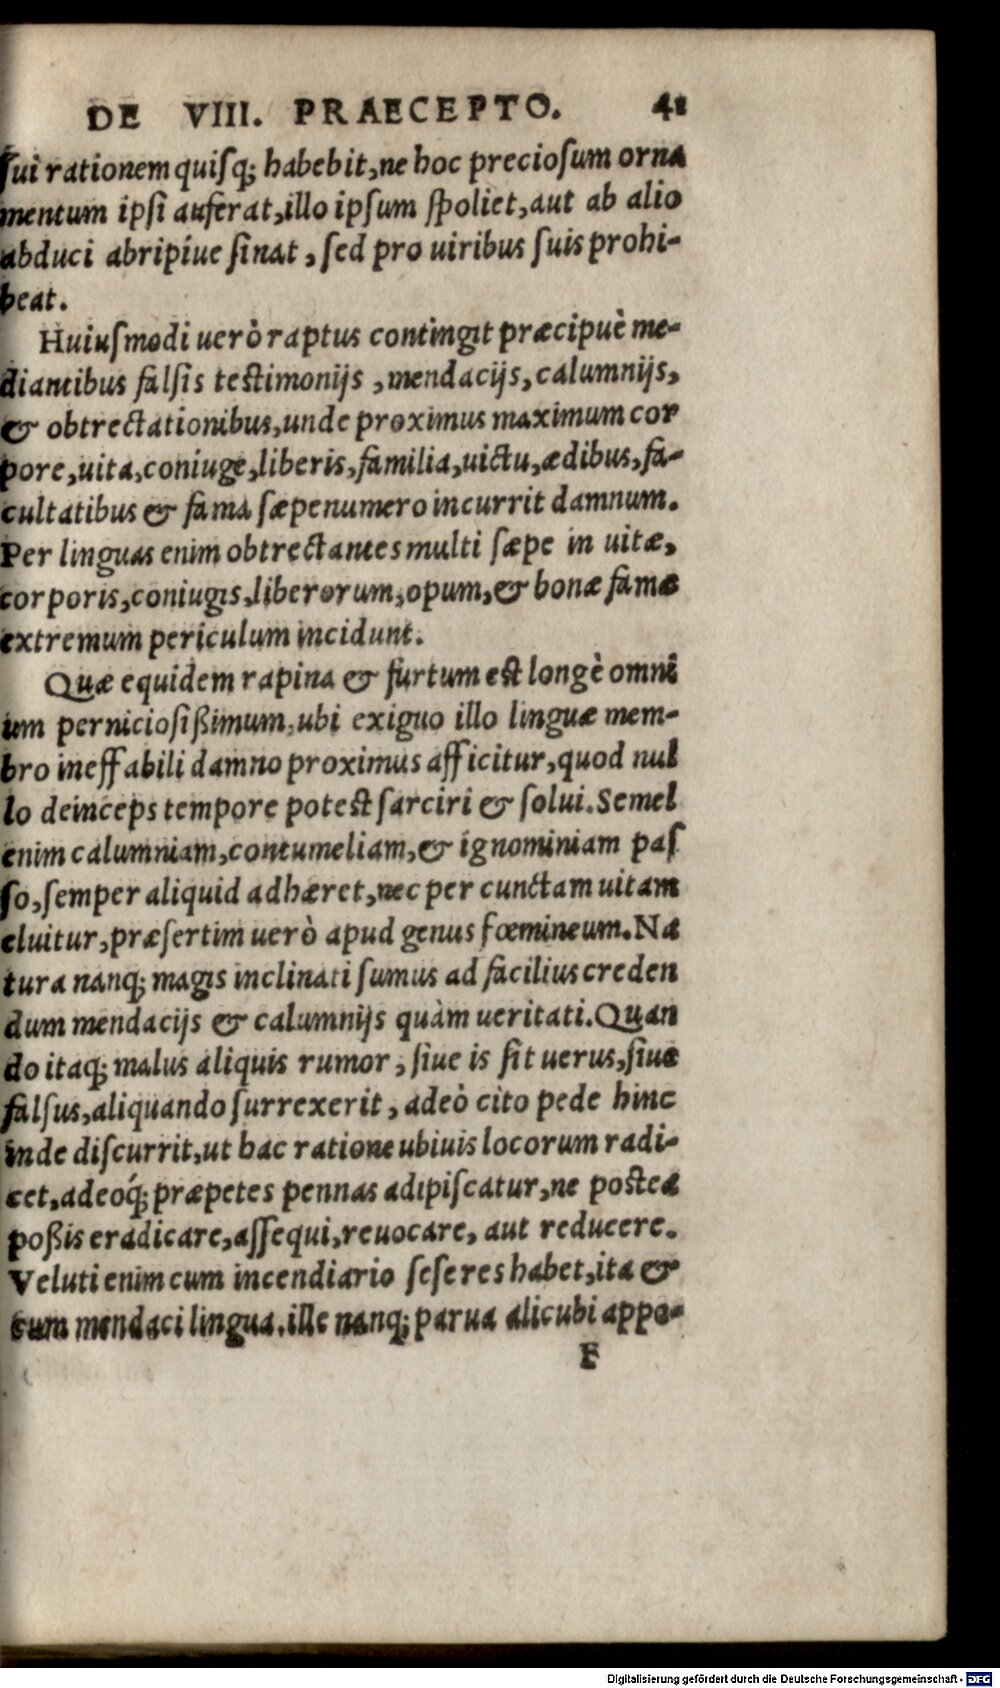 DE VIII. PRAECEPTO. 41
ſui rationem quiſq; habebit, ne hoc precioſum orna
mentum ipſi auferat, illo ipſum ſpoliet, aut ab alio
abduci abripíue ſinat, ſed pro uiribus ſuis prohi-
beat.
Huiuſmodi uerò raptus contingit præcipuè me-
diantibus falſis teſtimonijs, mendacijs, calumnijs,
& obtrectationibus, unde proximus maximum cor
pore, uita, coniuge, liberis, familia, uictu, ædibus, fa-
cultatibus & fama ſæpenumero incurrit damnum.
Per linguas enim obtrectantes multi ſæpe in uitæ,
corporis, coniugis, liberorum, opum, & bonæ famæ
extremum periculum incidunt.
Quæ equidem rapina & furtum eſt longè omni
um pernicioſißimum, ubi exiguo illo linguæ mem-
bro ineffabili damno proximus afficitur, quod nul
lo deinceps tempore poteſt ſarciri & ſolui. Semel
enim calumniam, contumeliam, & ignominiam paſ
ſo, ſemper aliquid adhæret, nec per cunctam uitam
eluitur, præſertim uerò apud genus fœmineum. Na
tura nanq; magis inclinati ſumus ad facilius creden
dum mendacijs & calumnijs quàm ueritati. Quan
do itaq; malus aliquis rumor, ſiue is ſit uerus, ſiue
falſus, aliquando ſurrexerit, adeò cito pede hinc
inde diſcurrit, ut hac ratione ubiuis locorum radi-
cet, adeoq́; præpetes pennas adipiſcatur, ne poſtea
poßis eradicare, aſſequi, reuocare, aut reducere.
Veluti enim cum incendiario ſeſe res habet, ita &
cum mendaci lingua. ille nanq; parua alicubi appo-
F
Digitalisierung gefördert durch die Deutsche Forschungsgemeinschaft - DFG